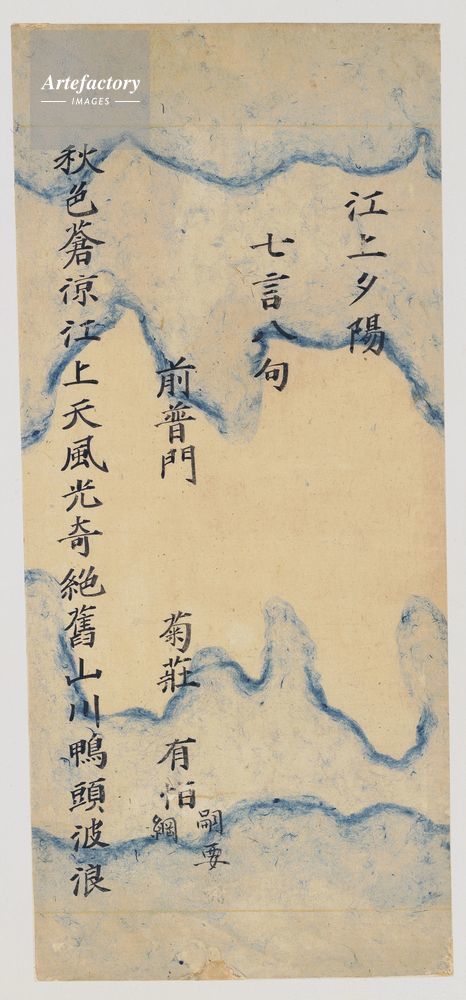 江上夕陽
七言八句
前普門 菊莊 有怕
嗣要
綱
秋色蒼凉江上天風光奇絶舊山川鴨頭波浪
Artefactory
IMAGES